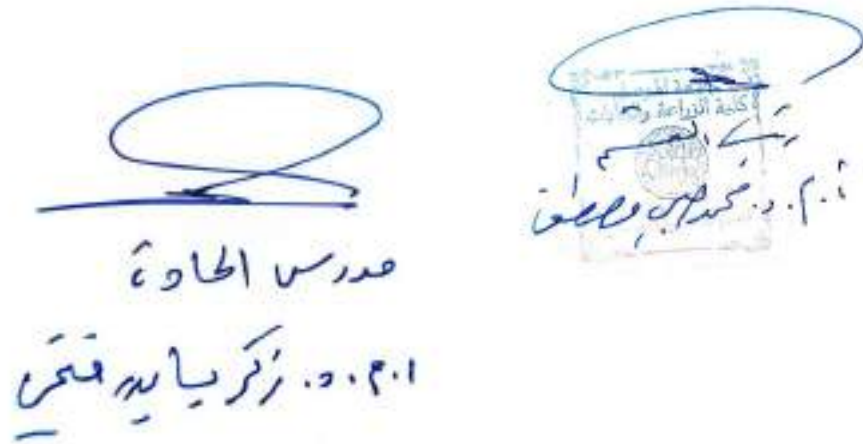 كلية الزراعة والغابات
رئيس القسم
أ.م.د. محمد صبحي مصطفى
مدرس المادة
ا.م.د. زكريا بدر فتحي